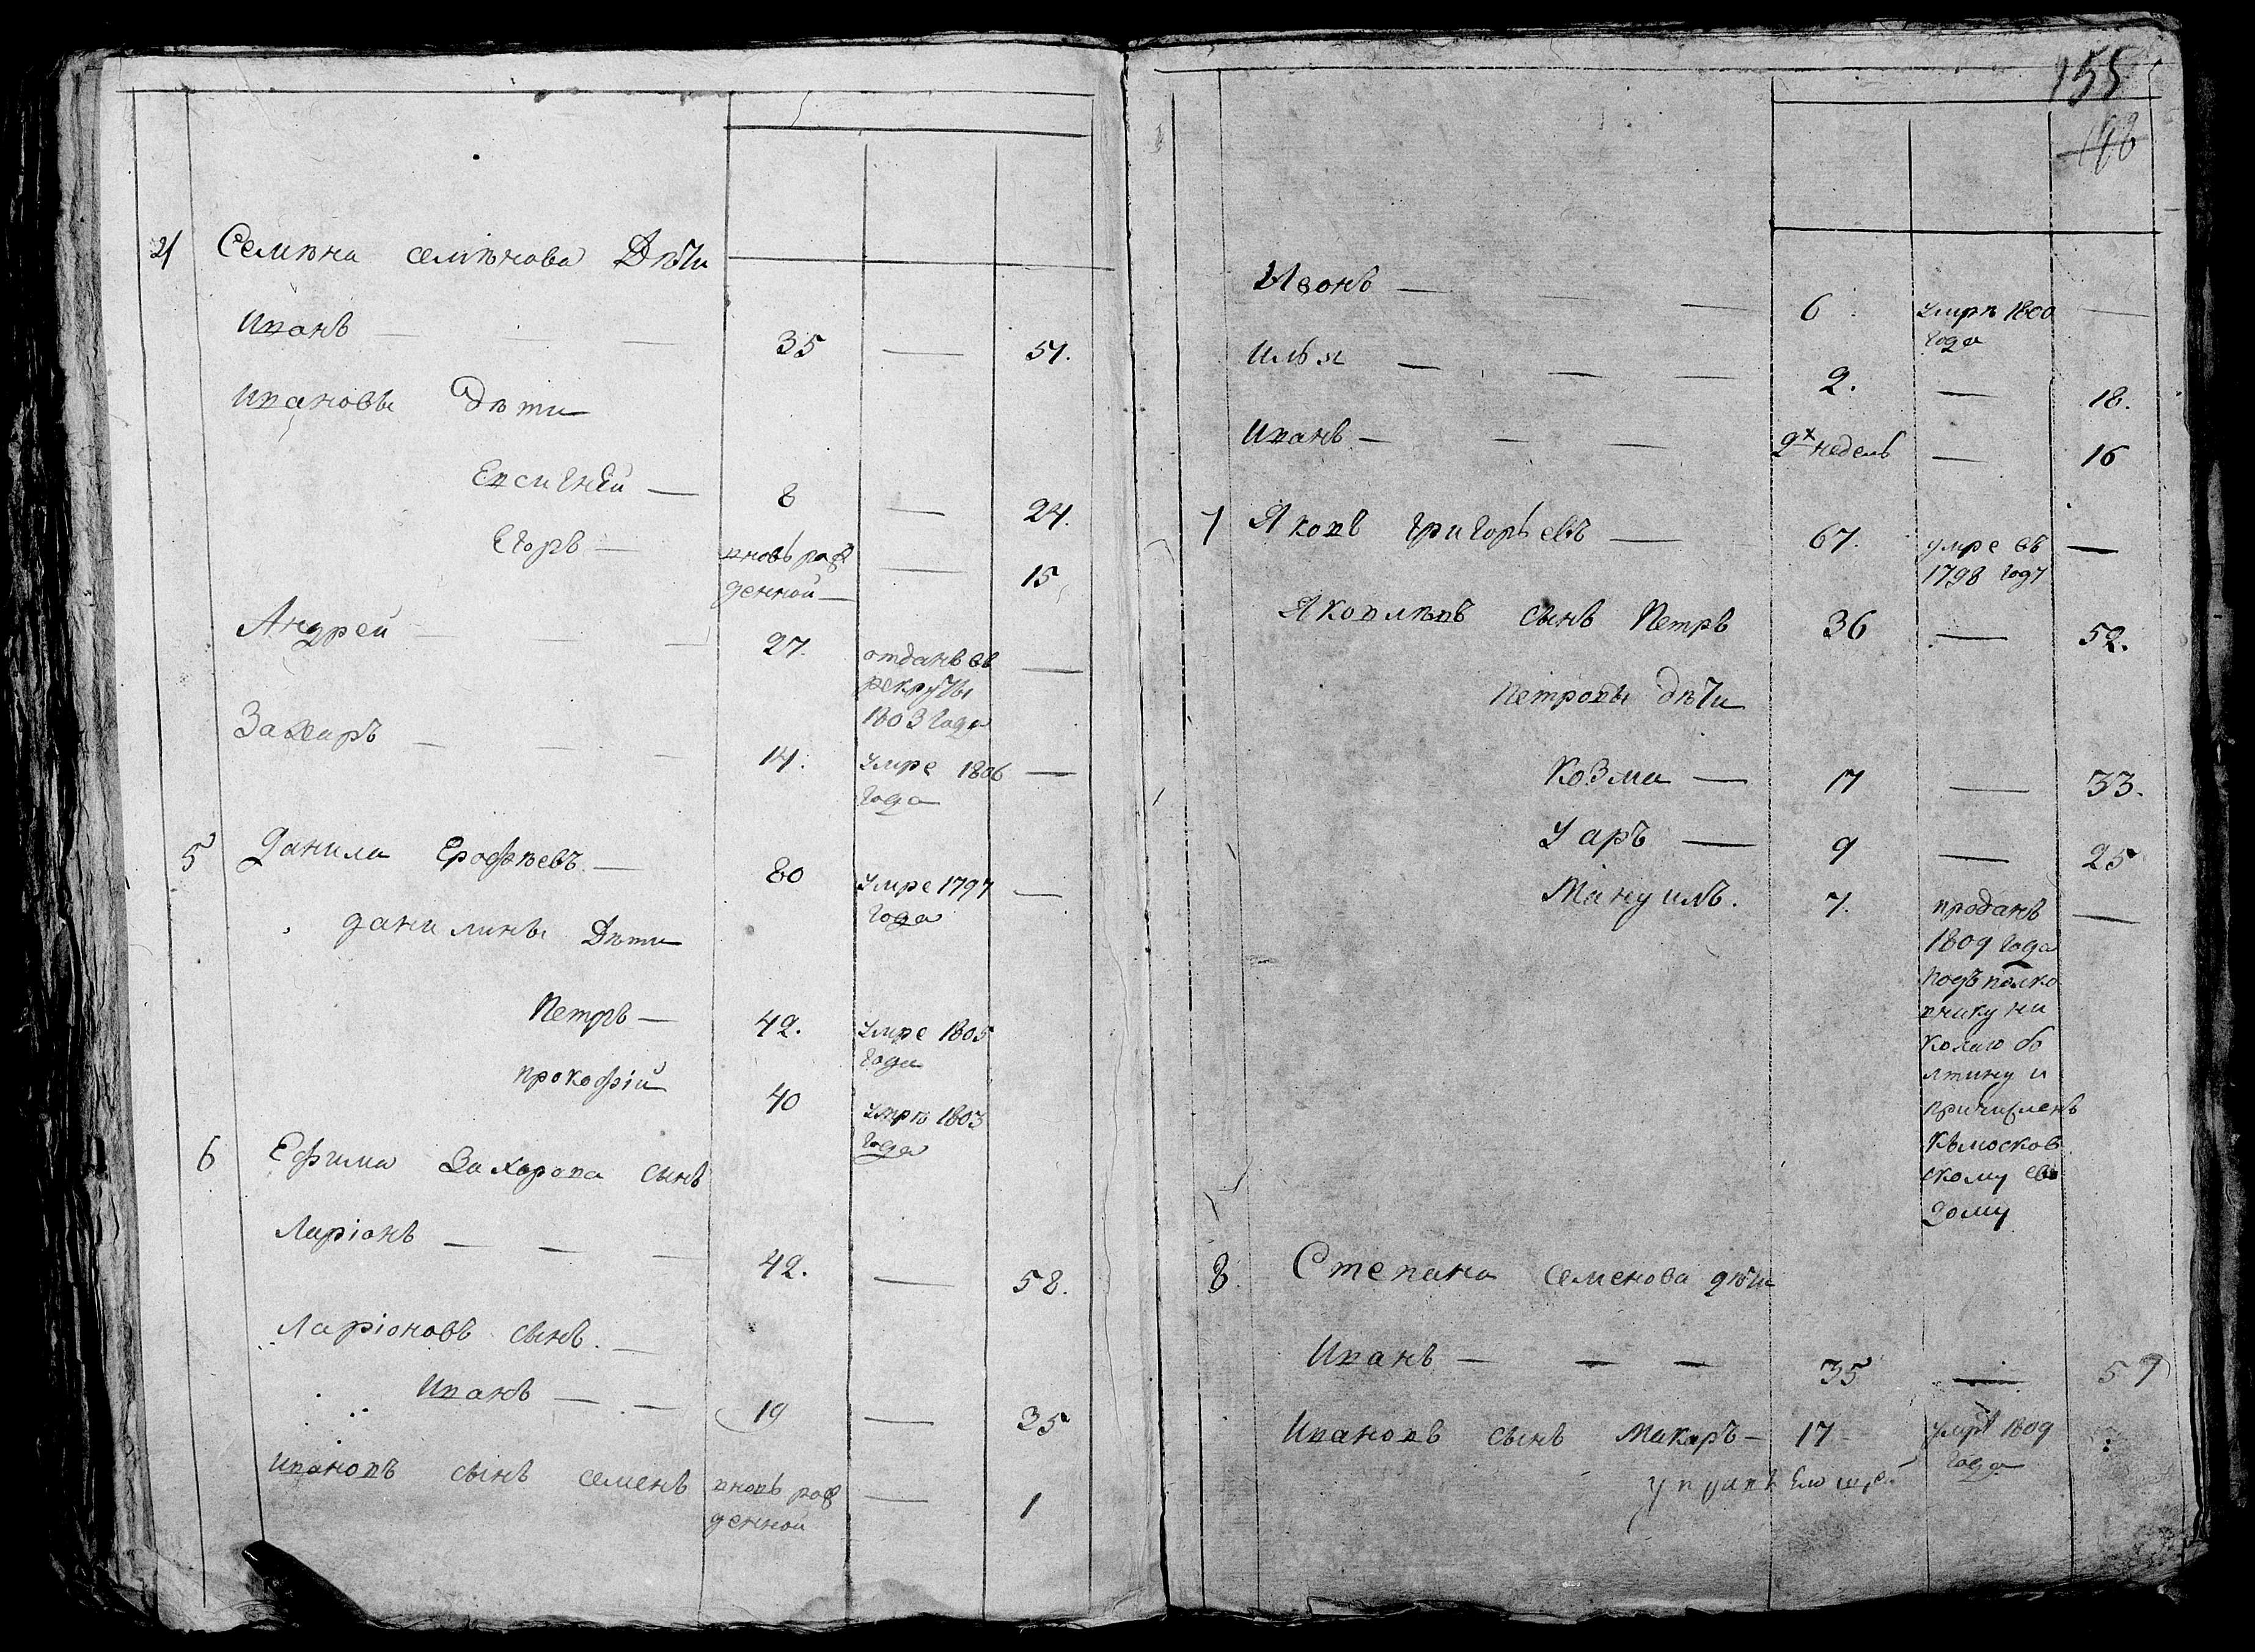 4 Семѣна семѣнова Дѣти
Иванъ — — — 35 — 51.
Ивановы дѣти
Евсигнѣй — 8 — 24.
Егоръ — вновь рож — 15
денной —
Андрей — — — 27. отданъ въ —
рекруты
1803 Года
Захаръ — — — 14. умре 1806 —
года
5 Данила Ерофѣевъ — 80 умре 1797 —
года
данилины Дѣти
Петръ — 42. умре 1805
года
прокофій 40 умрѣ 1803
года
6 Ефима Захарова сынъ
Ларіонъ — — — 42. — 58.
Ларіоновъ сынъ. —
Иванъ — — 19 — 35
Ивановъ сынъ семенъ вновь рож — 1
денной
155
Ивонъ — — — 6 умрѣ 1800 —
года
Илья — — — 2. — 18.
Иванъ — — — 2х недель — 16
7 Яковъ григорьевъ — 67. умре въ —
1798 году
Яковлевъ сынъ Петръ 36 — 52.
Петровы дѣти
Козма — 17 — 33.
Уаръ — 9 — 25
Мануилъ. 7. проданъ —
1809 года
подъполко
внику ни
колаю бо
лтину и
причисленъ
къ москов
скому ево
дому
8 Степана семенова дѣти
Иванъ — — — 35 — 51
Ивановъ сынъ Макаръ — 17 — умрѣ 1809
года